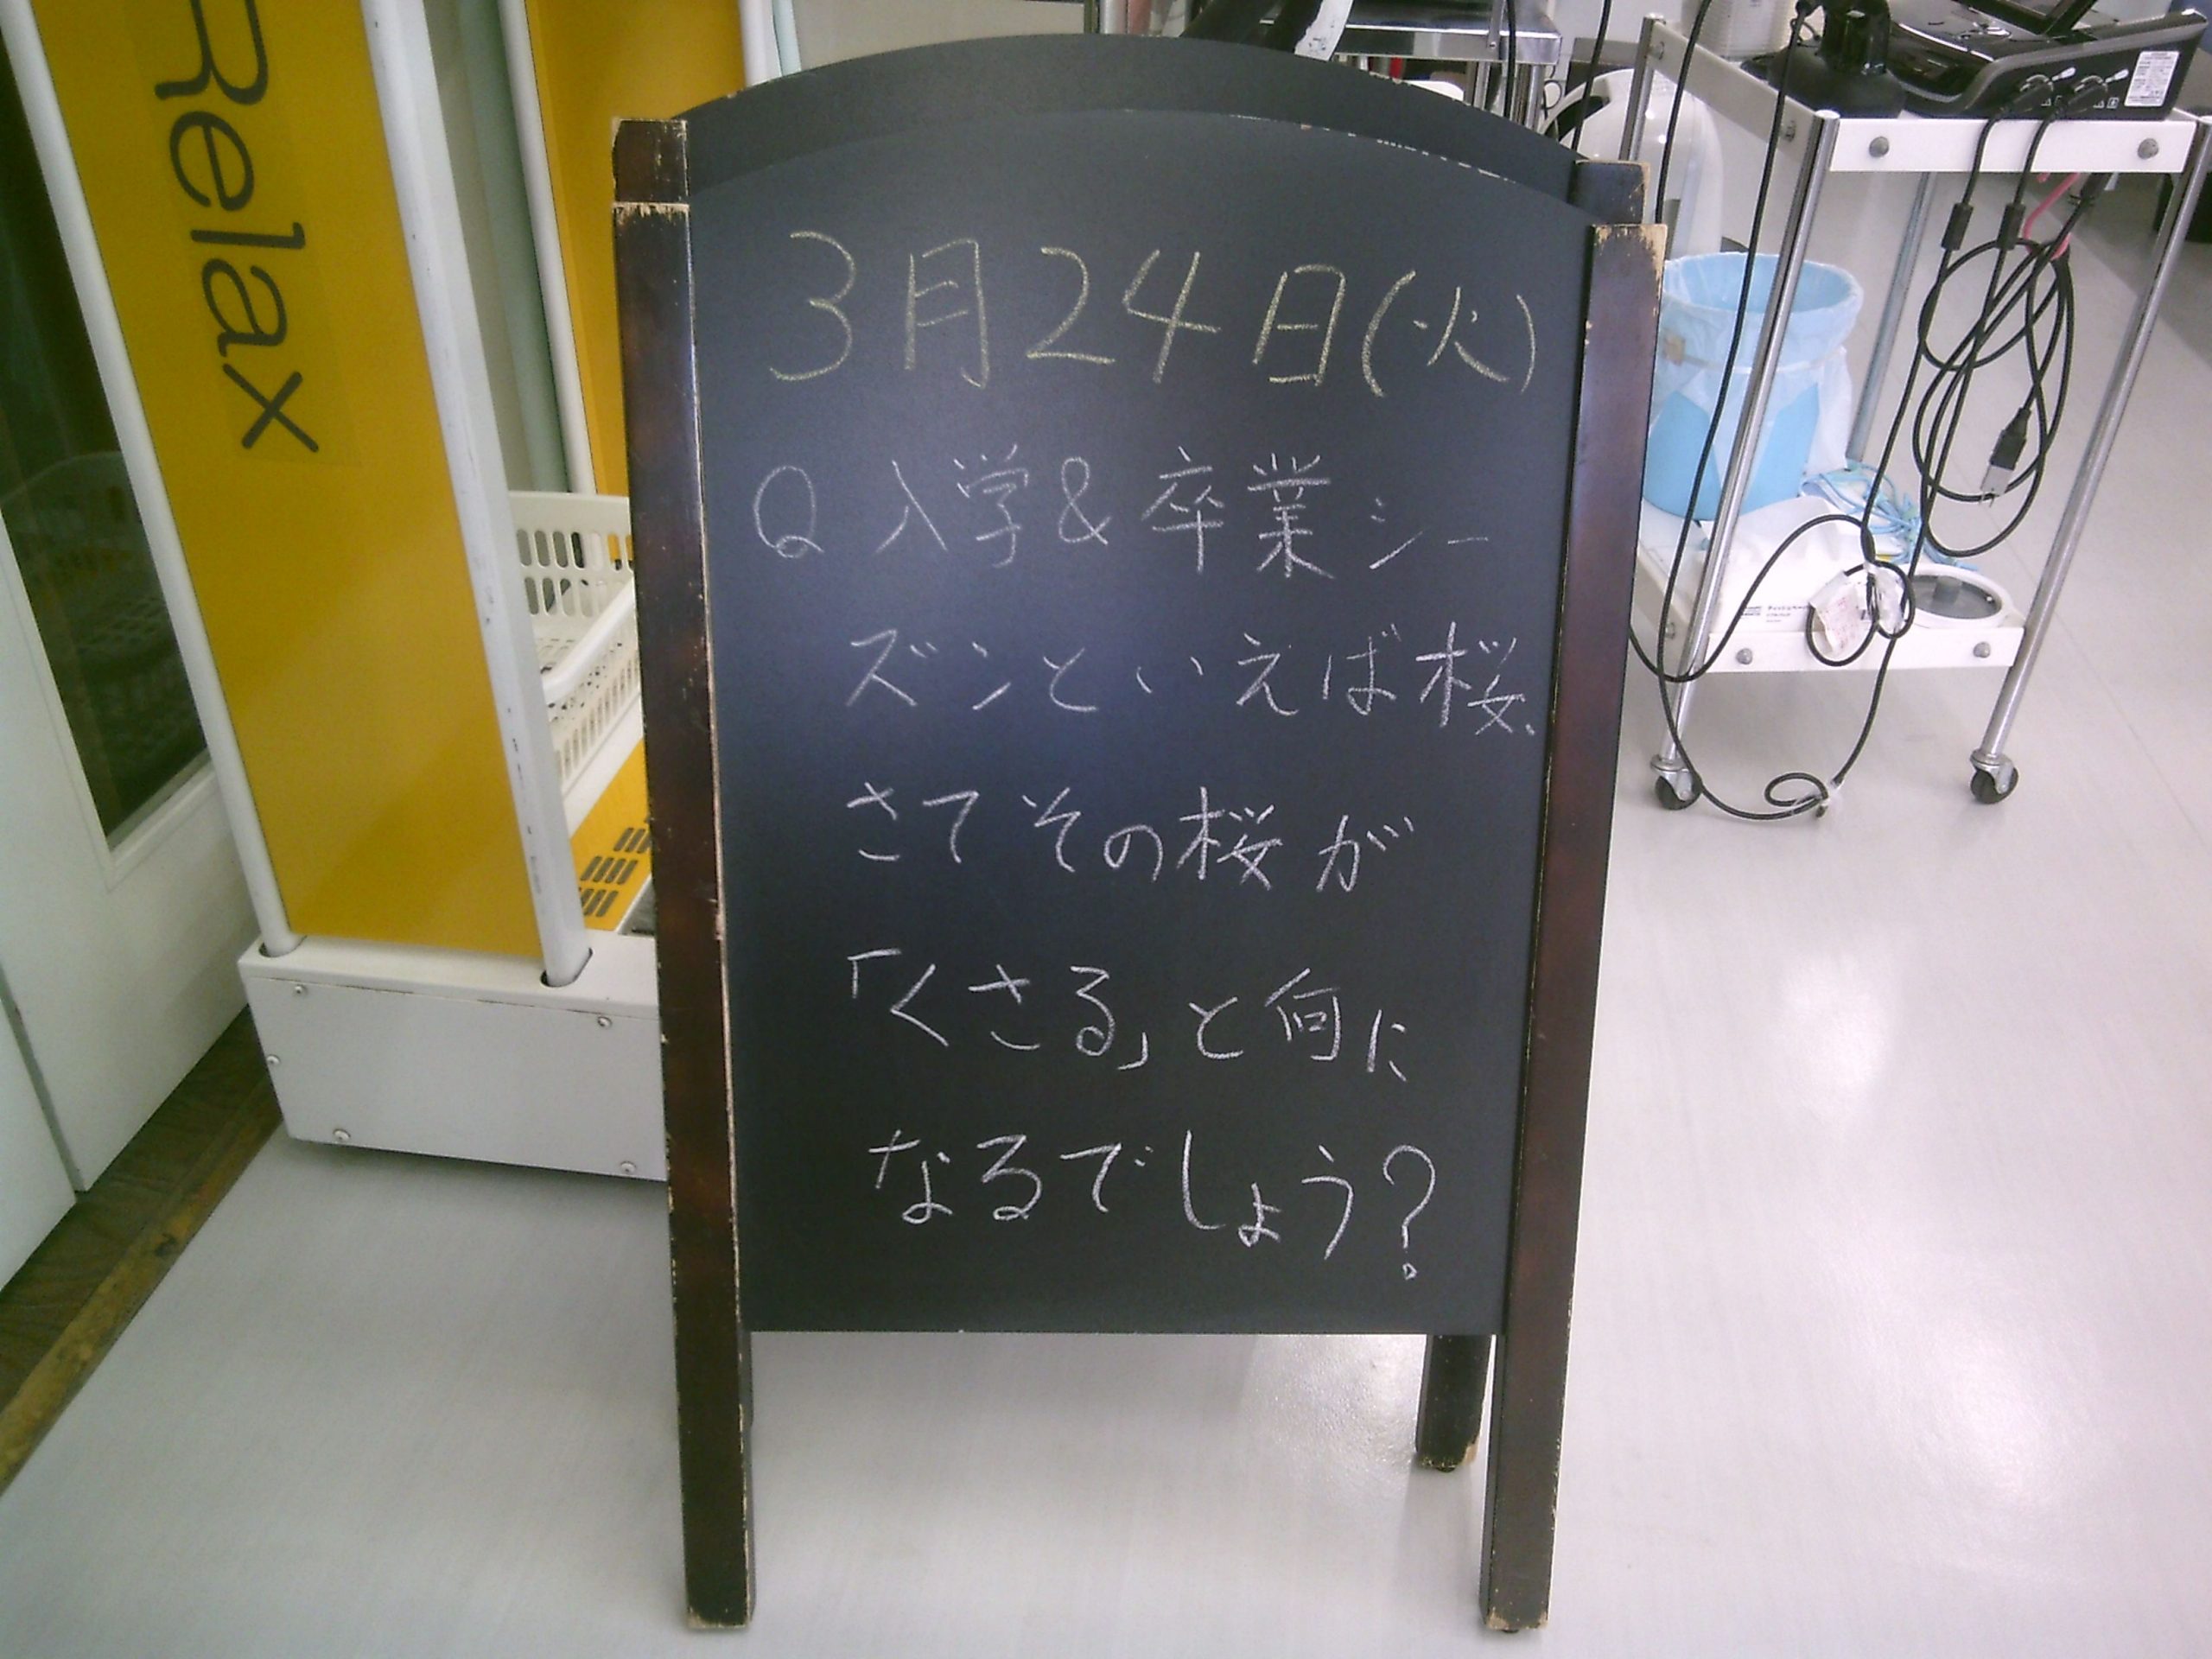 Relax
3月24日(火)
Q 入学&卒業シー
ズンといえば桜、
さてその桜が
「くさる」と何に
なるでしょう?